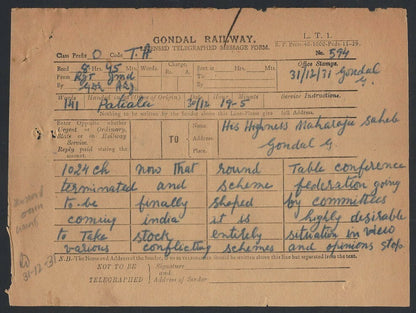 GONDAL RAILWAY.
L. T. 1.
LICENSED TELEGRAPHED MESSAGE FORM.
Class Prefix O Code T.A No. 594
Recd 8 Hrs. 45 Mts. Words. Office Stamps.
From
By
31/12/31 Gondal
Words. Handed in at (Office of Origin). Date. Hour. Minute. Service Instructions.
141 Patiala 30/12 19-5
Nothing to be written for the sender above this Line—Please give full Address.
Enter Opposite whether
Urgent or Ordinary,
State or on Railway
Service.
Reply paid stating the
amount.
TO
Name
Address
Place
His Highness Maharaja Saheb
Gondal
1024 ch now that round Table conference
terminated and scheme federation going
to be finally shaped by committees
coming india it is highly desirable
to Take stock entirely situation in view
various conflicting schemes and opinions stop
N.B.—The Name and Address of the Sender, if to be telegraphed, should be written above this line but separated from the text.
NOT TO BE
TELEGRAPHED
Signature
and
Address of Sender
31-12-31